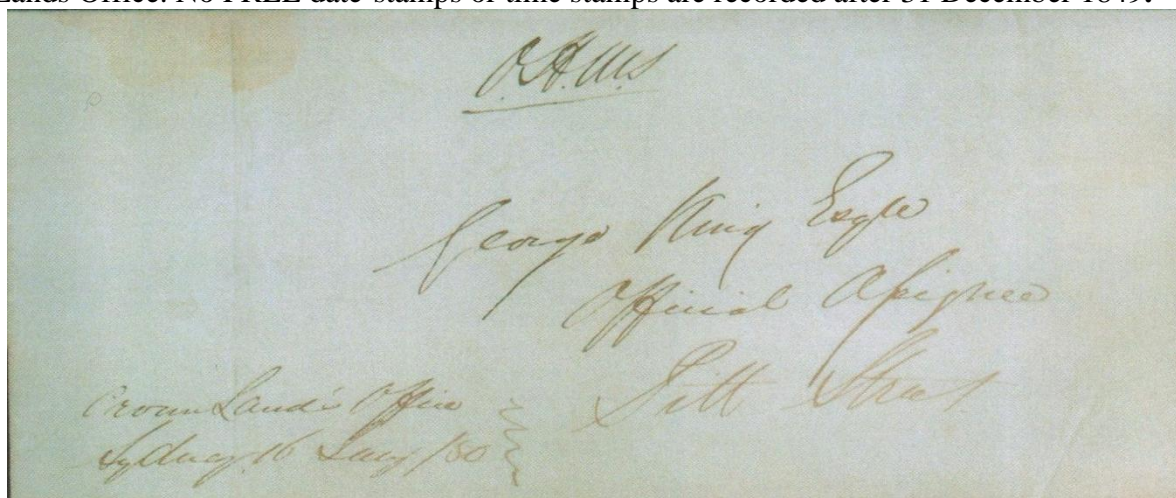 Lands Office. No FREE date-stamps or time stamps are recorded after 31 December 1849.
O.H.M.S
George King Esqre
Official Assignee
Pitt Street
Crown Lands Office
Sydney 16 Jany /50